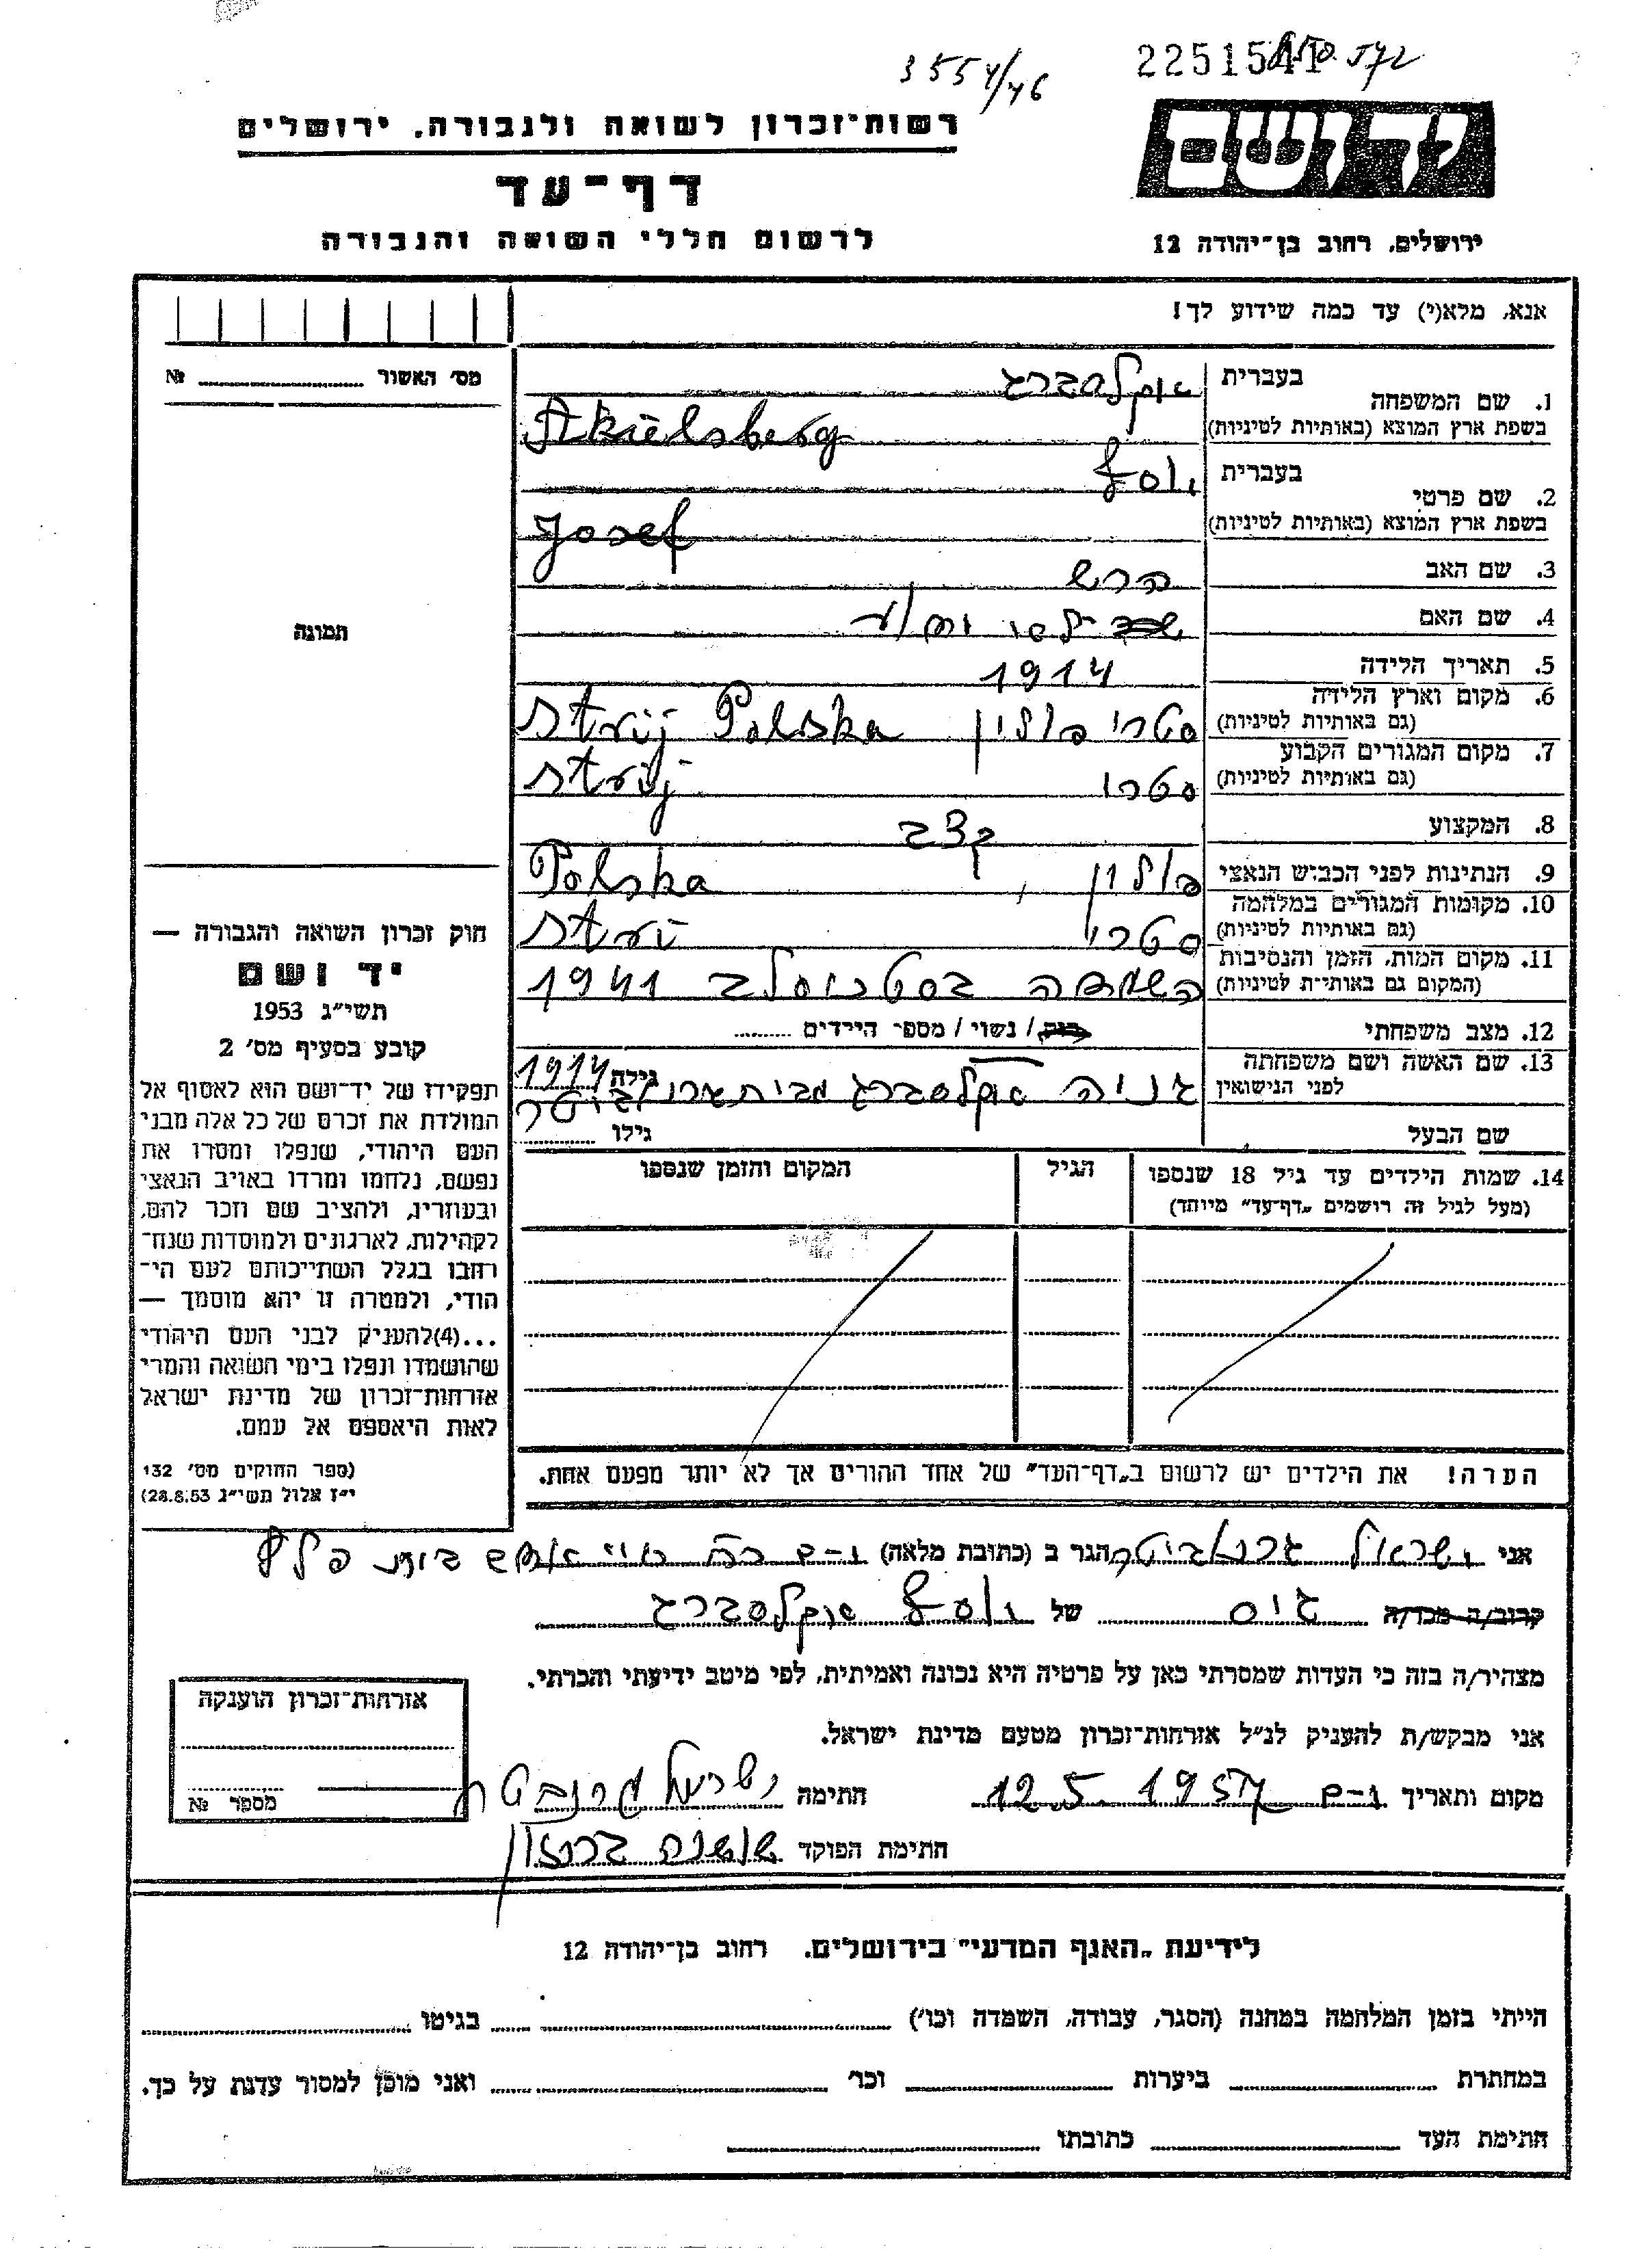 3554/46
2251541
572
יד ושם
רשות־זכרון לשואה ולגבורה, ירושלים
דף־עד
לרשום חללי השואה והגבורה
ירושלים, רחוב בן־יהודה 12
אנא, מלא(י) עד כמה שידוע לך!
מס׳ האשור № 
תמונה
1. שם המשפחה בעברית אקלסברג
בשפת ארץ המוצא (באותיות לטיניות) Akielsberg
2. שם פרטי בעברית יוסף
בשפת ארץ המוצא (באותיות לטיניות) Josef
3. שם האב הרש
4. שם האם
5. תאריך הלידה 1914
6. מקום וארץ הלידה (גם באותיות לטיניות) סטרי פולין Strij Polska
7. מקום המגורים הקבוע (גם באותיות לטיניות) סטרי Strij
8. המקצוע קצב
9. הנתינות לפני הכבוש הנאצי פולין, Polska
10. מקומות המגורים במלחמה (גם באותיות לטיניות) סטרי Stri
11. מקום המות, הזמן והנסיבות (המקום גם באותיות לטיניות) 1941
12. מצב משפחתי רווק/ נשוי/ מספר הילדים
13. שם האשה ושם משפחתה לפני הנישואין גניה אקלסברג מבית גילה 1914
שם הבעל גילו
14. שמות הילדים עד גיל 18 שנספו
(מעל לגיל זה רושמים „דף־עד״ מיוחד)
הגיל
המקום והזמן שנספו
הערה! את הילדים יש לרשום ב„דף־העד״ של אחד ההורים אך לא יותר מפעם אחת.
חוק זכרון השואה והגבורה —
יד ושם
תשי״ג 1953
קובע בסעיף מס׳ 2
תפקידו של יד־ושם הוא לאסוף אל
המולדת את זכרם של כל אלה מבני
העם היהודי, שנפלו ומסרו את
נפשם, נלחמו ומרדו באויב הנאצי
ובעוזריו, ולהציב שם וזכר להם,
לקהילות, לארגונים ולמוסדות שנח־
רבו בגלל השתייכותם לעם הי־
הודי, ולמטרה זו יהא מוסמך —
...(4)להעניק לבני העם היהודי
שהושמדו ונפלו בימי השואה והמרי
אזרחות־זכרון של מדינת ישראל
לאות היאספם אל עמם.
(ספר החוקים מס׳ 132
י״ז אלול תשי״ג 28.8.53)
אני ישראל הגר ב (כתובת מלאה) י-ם
קרוב/ה מכר/ה גיס של יוסף אקלסברג
מצהיר/ה בזה כי העדות שמסרתי כאן על פרטיה היא נכונה ואמיתית, לפי מיטב ידיעתי והכרתי.
אני מבקש/ת להעניק לנ״ל אזרחות־זכרון מטעם מדינת ישראל.
מקום ותאריך י-ם 12.5.1957 חתימה ישראל
חתימת הפוקד שושנה
אזרחות־זכרון הוענקה
מספר №
לידיעת „האגף המדעי״ בירושלים. רחוב בן־יהודה 12
הייתי בזמן המלחמה במחנה (הסגר, עבודה, השמדה וכו׳) בגיטו
במחתרת ביערות וכו׳ ואני מוכן למסור עדות על כך.
חתימת העד כתובתו